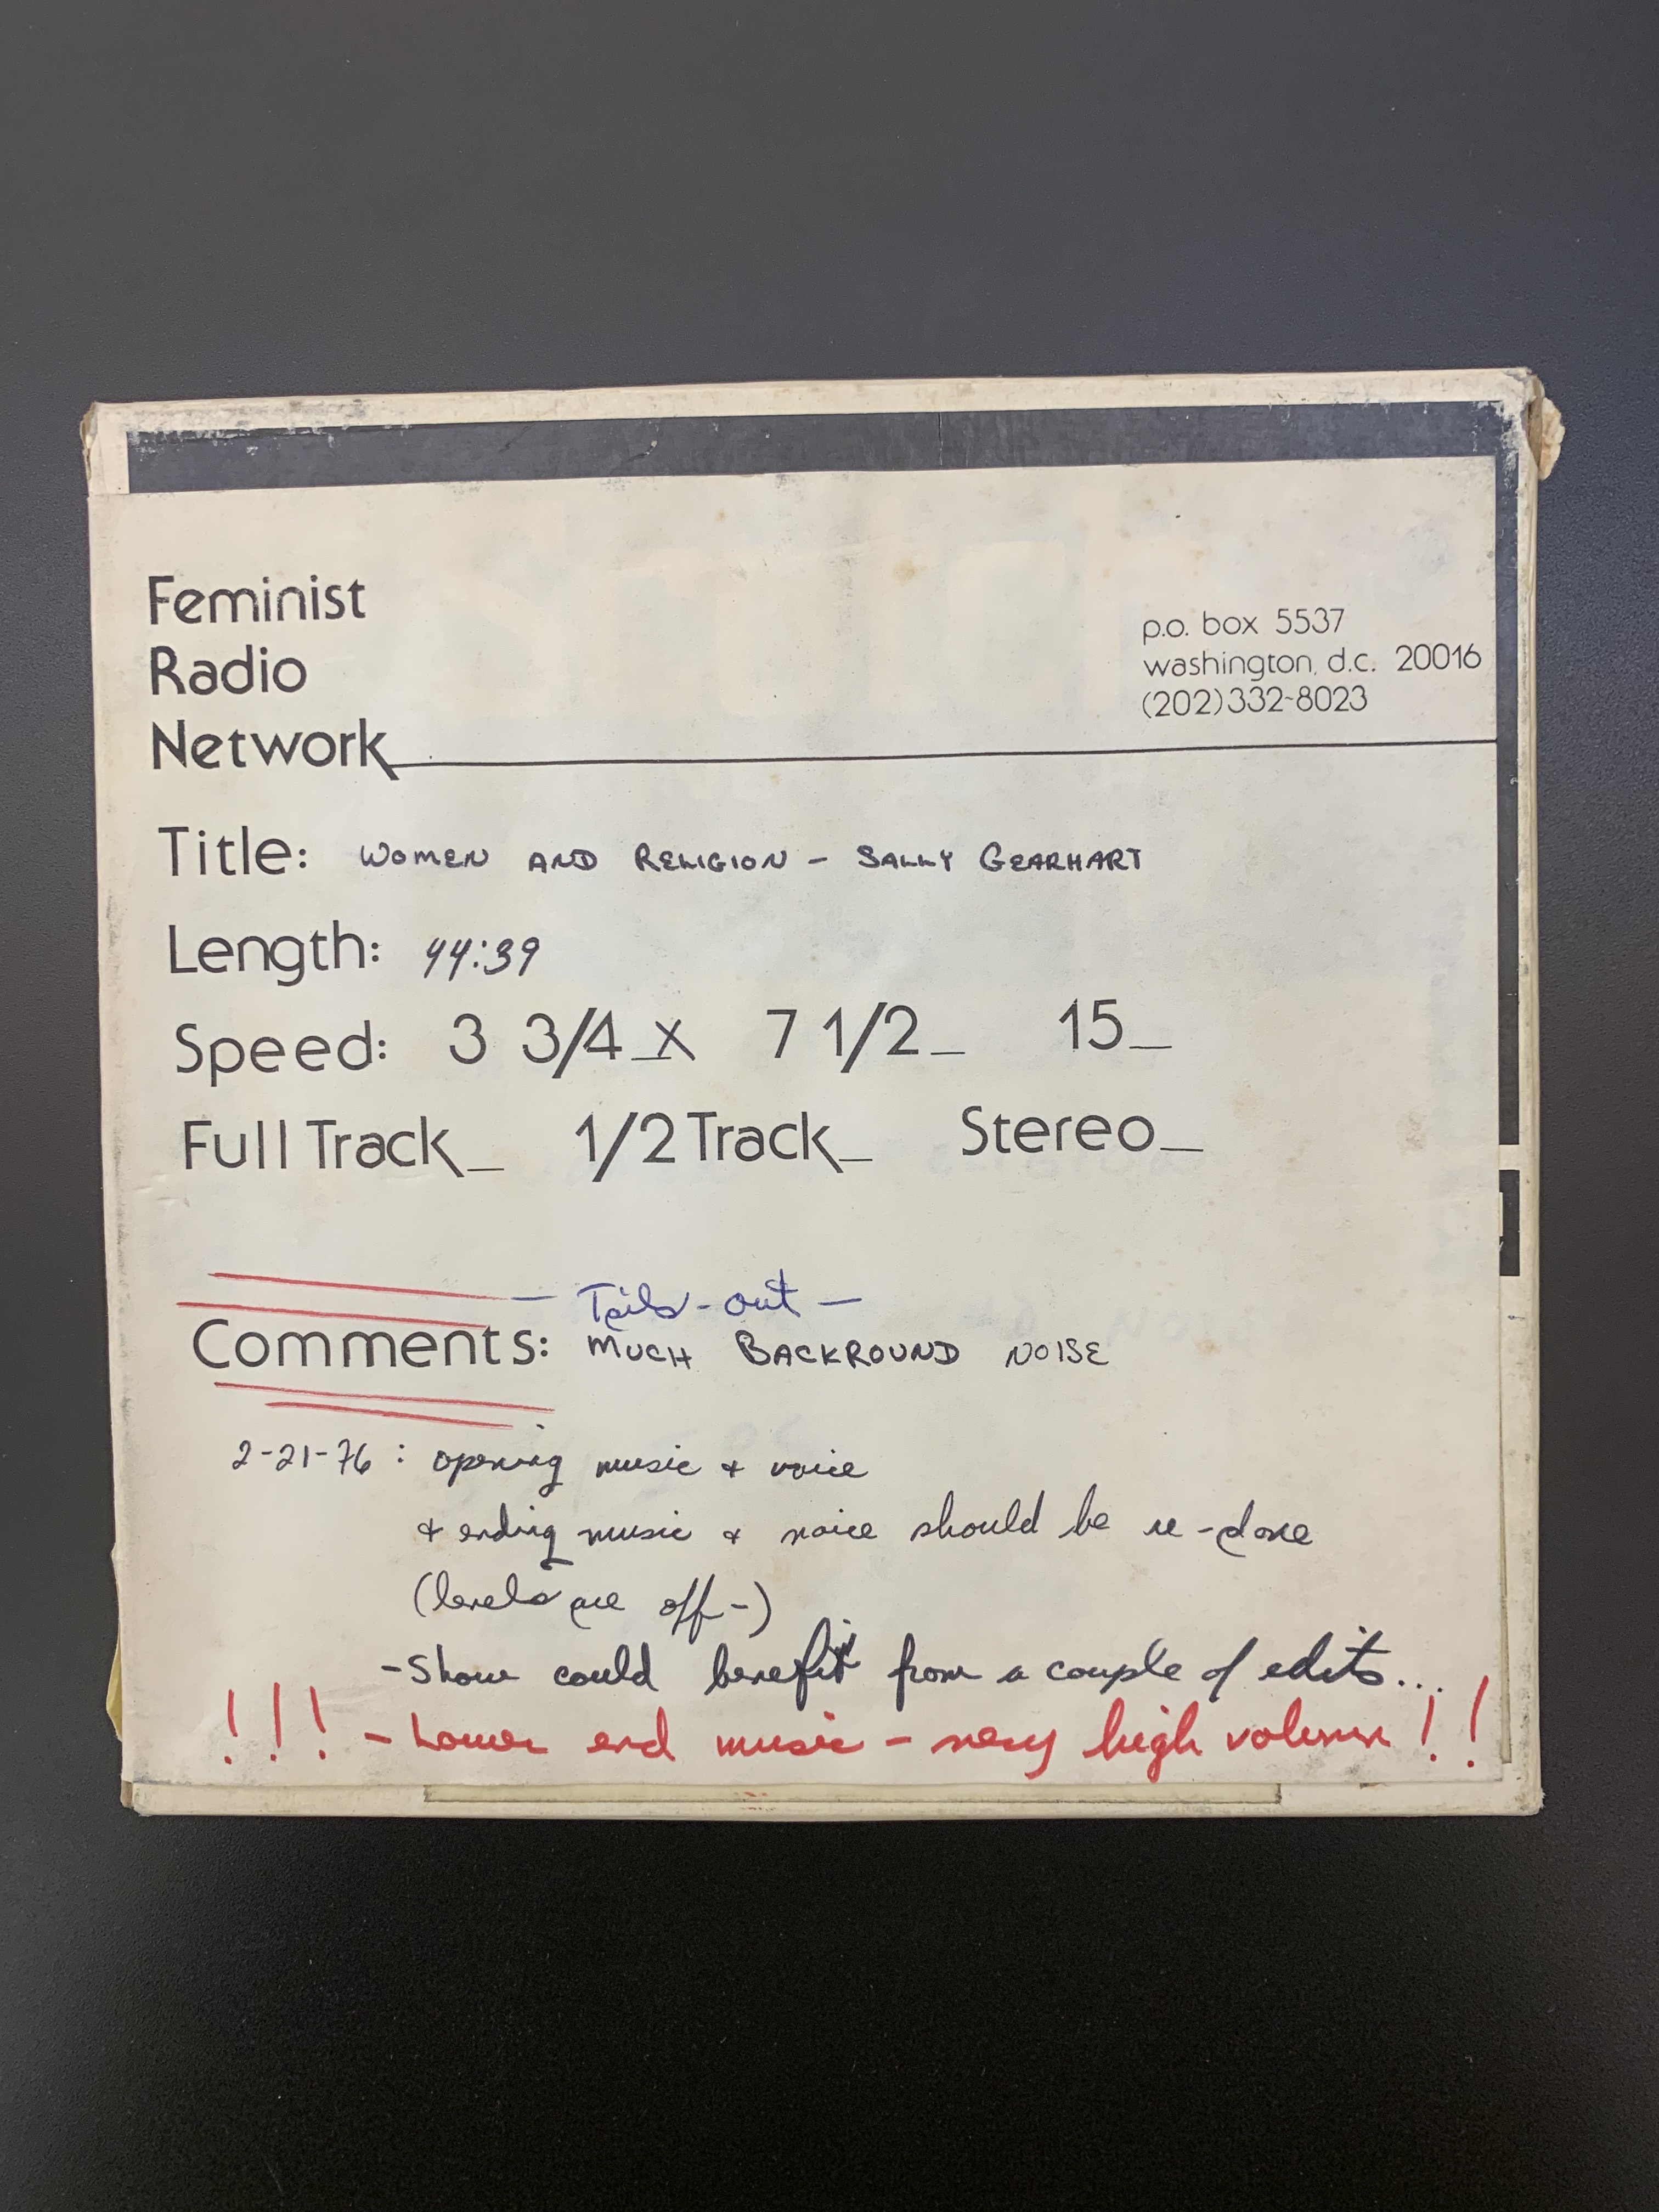 Feminist
Radio
Network
p.o. box 5537
washington, d.c. 20016
(202)332-8023
Title: WOMEN AND RELIGION - SALLY GEARHART
Length: 44:39
Speed: 3 3/4 X 7 1/2 _ 15 _
Full Track _ 1/2 Track _ Stereo _
- Tails-out -
Comments: MUCH BACKROUND NOISE
2-21-76 : opening music & voice
& ending music & voice should be re-done
(levels are off-)
- Show could benefit from a couple of edits...
!!! - Lower end music - very high volume!!